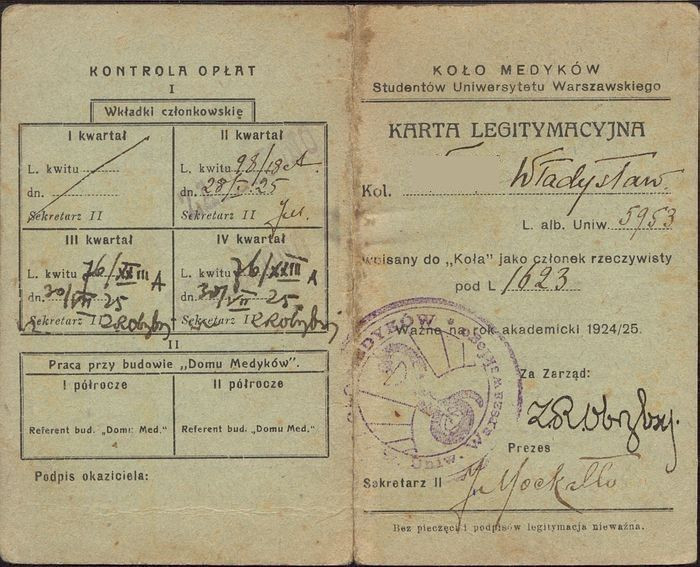 KONTROLA OPŁAT
I
Wkładki członkowskię
I kwartał
L. kwitu
dn.
Sekretarz II
II kwartał
L. kwitu 98/18 A.
dn. 28/I 25
Sekretarz II
III kwartał
L. kwitu 76/XXIII A
dn. 30/VII 25
Sekretarz
IV kwartał
L. kwitu 76/XXIII A
dn. 30/VII 25
Sekretarz
II
Praca przy budowie „Domu Medyków".
I półrocze
Referent bud. „Domu Med."
II półrocze
Referent bud. „Domu Med."
Podpis okaziciela:
KOŁO MEDYKÓW
Studentów Uniwersytetu Warszawskiego
KARTA LEGITYMACYJNA
Kol. Władysław.
L. alb. Uniw. 5953
wpisany do „Koła" jako członek rzeczywisty
pod L 1623
Ważne na rok akademicki 1924/25.
MEDYKÓW
Uniw. Warszawskiego
Za Zarząd:
Prezes
Sekretarz II
Bez pieczęci i podpisów legitymacja nieważna.